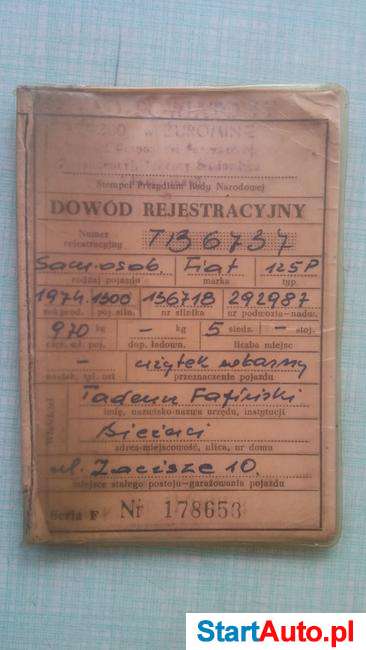 w ŻUROMINIE
Stempel Prezydium Rady Narodowej
DOWÓD REJESTRACYJNY
Numer rejestracyjny
Sam. osob. Fiat 125P
rodzaj pojazdu marka typ
1974 1300 136718 292987
rok prod. poj. siln. nr silnika nr podwozia-nadw.
970 kg – kg 5 siedz. – stoj.
cięż. wł. poj. dop. ładown. liczba miejsc
– użytek własny
przeznaczenie pojazdu
Tadeusz
imię, nazwisko-nazwa urzędu, instytucji
adres-miejscowość, ulica, nr domu
ul. Zacisze 10.
miejsce stałego postoju-garażowania pojazdu
Seria F Nr 178653
StartAuto.pl